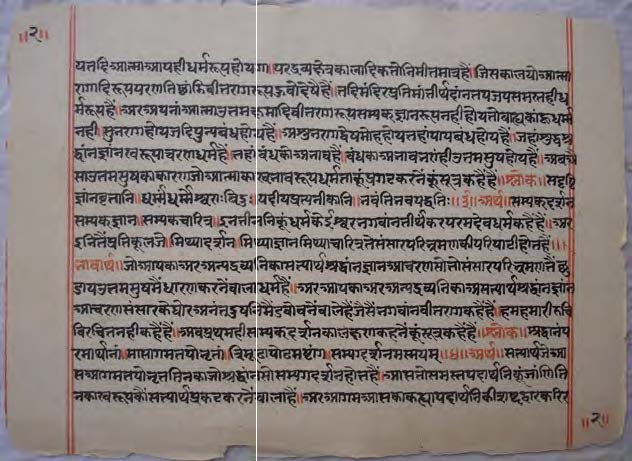 ॥२॥
यनहि आत्मा आप ही धर्मरूप होयगा ॥ परद्रव्य क्षेत्र कालादिक तो निमित्त मात्र है ॥ जिस काल यो आत्मा
रागादिरूप परणति छांडि वीतरागरूप हुवो देषै है ॥ तदि मंदिर प्रतिमा तीर्थ दांन तप जप समस्त ही ध
र्मरूप है ॥ अर अपनां आत्मा उत्तमक्षमादि वीतरागरूप सम्यक् ज्ञानरूप नही होय तो वाह्य कहूं धर्म
नही ॥ सुभराग होय जदि पुन्य बंध होय है ॥ अशुभ राग द्वेष मोह होय तहां पाप बंध होय है ॥ जहां शुद्ध श्र
द्धांन ज्ञांन स्वरूपाचरण धर्म है ॥ तहां बंध को अभाव है ॥ बंध का अभाव भएं ही उत्तम सुष होय है ॥ अब ऐ
सा उत्तम सुष का कारण जो आत्मा का स्वभावरूप धर्म ताकूं प्रगट करने कूं सूत्र कहै हैं ॥ श्लोक ॥ सदृष्टि
ज्ञानवृत्तानि ॥ धर्मं धर्मेश्वराः विदुः ॥ यदीयप्रत्यनीकानि ॥ भवंति भवपद्धतिः ॥ ३ ॥ अर्थ ॥ सम्यक् दर्शन
सम्यक ज्ञान ॥ सम्यक चारित्र ॥ इन तीननि कूं धर्म के ईश्वर भगवांन तीर्थंकर परम देव धर्म कहैं हैं ॥ अर
इनितैं प्रतिकूल जे ॥ मिथ्यादर्शन ॥ मिथ्याज्ञान मिथ्याचारित्र ते संसार परिभ्रमण की परिपाटी होत है ॥
भावार्थ ॥ जो आपका अर अन्य द्रव्यनि का सत्यार्थ श्रद्धांन ज्ञांन आचरण सो तो संसार परिभ्रमण तैं छु
डाय उत्तम सुष मैं धारण करनें वाला धर्म है ॥ अर आपका अर अन्य द्रव्यनि का असत्यार्थ श्रद्धांन ज्ञांन
आचरण संसार के घोर अनंत दुषनि मैं डबोवनें वाले हैं जैसैं भगवांन वीतराग कहैं हैं ॥ हम हमारी रुचि
विरचित नही कहैं हैं ॥ अब प्रथम ही सम्यक दर्शन का लक्षण कहनें कूं सूत्र कहै हैं ॥ श्लोक ॥ श्रद्धानं प
रमार्थानां ॥ माप्तागमतपोभृतां ॥ त्रिमूढापोढमष्टांगं ॥ सम्यग्दर्शनमस्मयम् ॥ ४ ॥ अर्थ ॥ सत्यार्थ जे आ
प्त आगम तपोभृत तिनका जो श्रद्धांन सो सम्यग्दर्शन होत है ॥ आप्त तो समस्त पदार्थनि कूं जांणि ति
नका स्वरूप कौं सत्यार्थ प्रकट करनें वाला है ॥ अर आगम आप्त का कह्या पदार्थनि की शब्द द्वार करि र
॥२॥